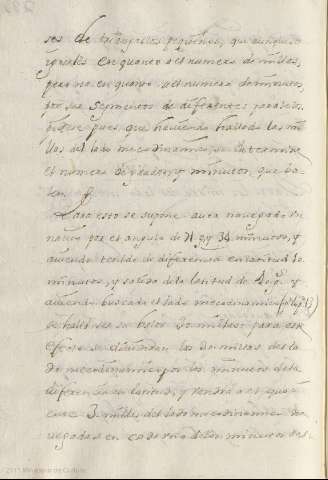 ses de triangulos pequeños, que aunque
iguales en quanto a el numero de millas,
pero no en quanto a el numero de minutos,
por ser segmentos de diferentes paralelos
pues que haviendo hallado las mi
llas del lado mecodinamico, se
el numero de grados, y minutos, que ba
len.
Para esto se supone aver navegado un
navio por el angulo de 71 g. y 34 minutos, y
aviendo tenido de diferencia en latitud 10
minutos, y salido de la latitud de
aviendo buscado el lado mecodinamico
se halló ser su valor 30 millas; para este
efecto se dividen las 30 millas del la
do mecodinamico, por los minutos de la
diferencia en latitud, y vendra a el quo
ciente 3 millas del lado mecodinamico na
vegadas en cada uno de los minutos de
2011 Ministerio de Cultura